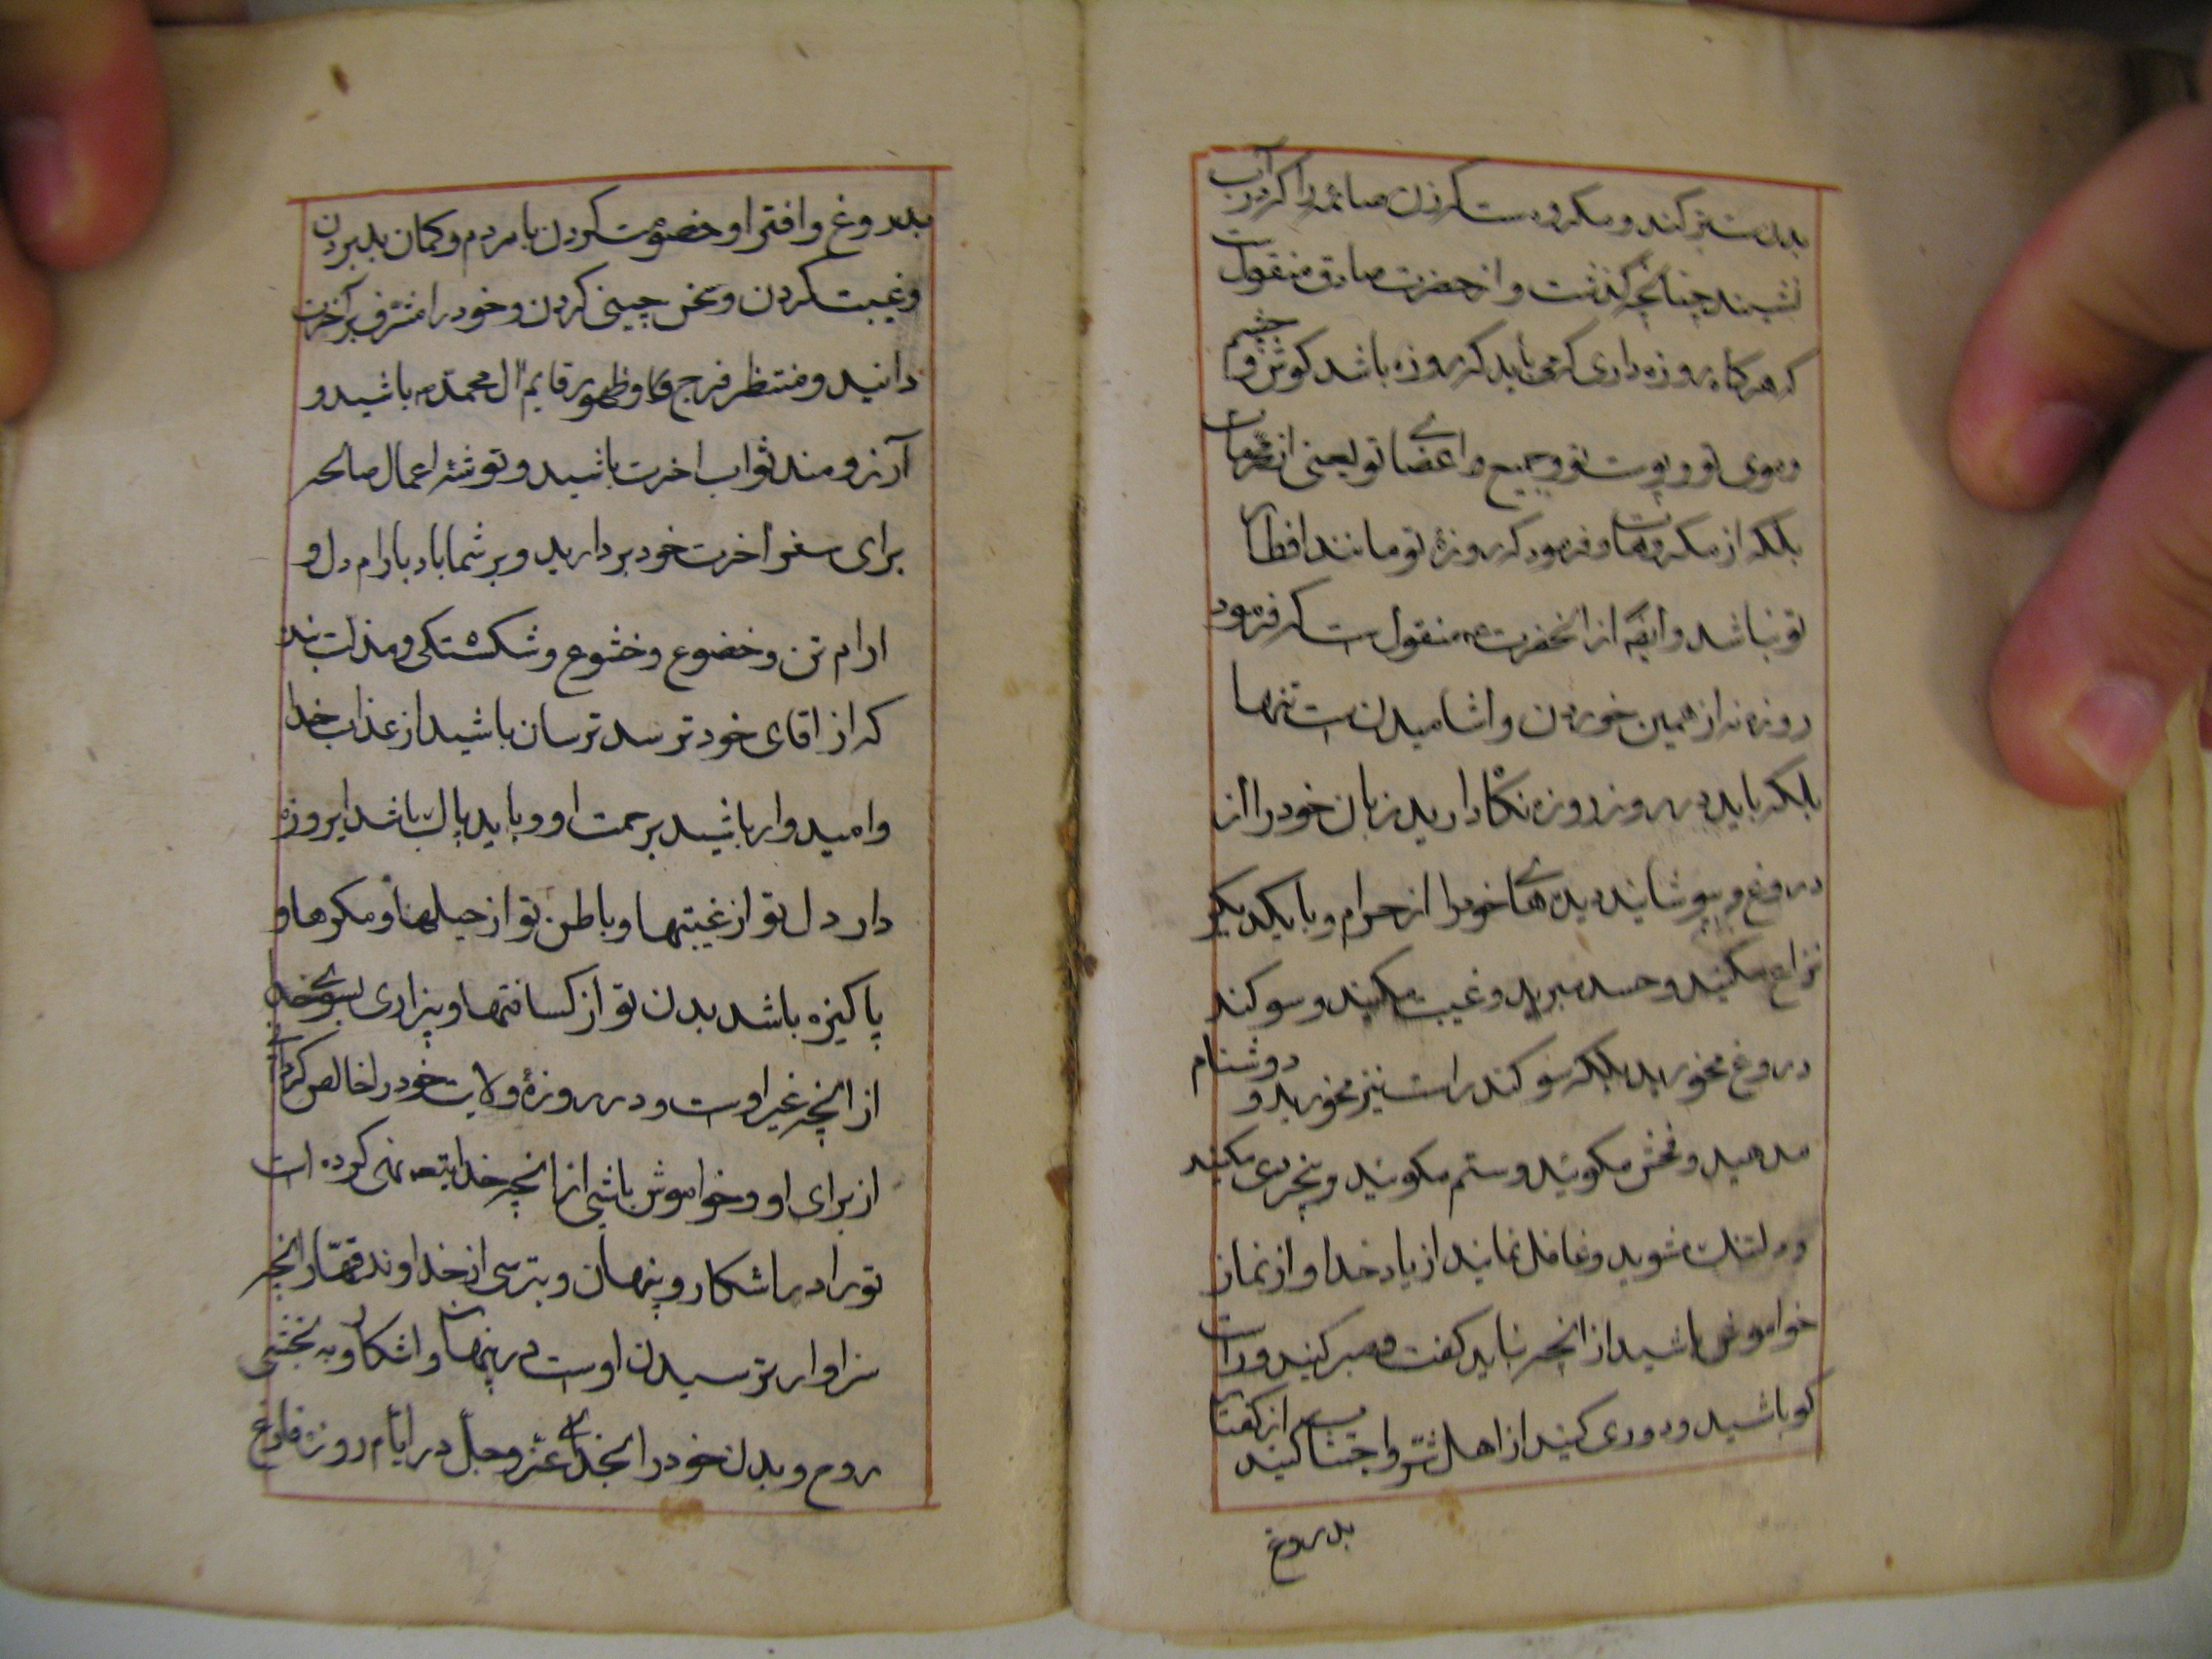 بدن ستر کند و مکروهست که زن صائمه را که در آب
نشیند چنانچه گذشت و از حضرت صادق منقولست
که هرگاه روزه داری که می باید که روزه باشد گوش و چشم
و موی تو و پوست تو و جمیع اعضای تو یعنی از محرمات
بلکه از مکروهات و فرمود که روزهٔ تو مانند افطار
تو نباشد و ایضا از انحضرت منقول است که فرمود
روزه نه از همین خوردن و اشامیدن است تنها
بلکه باید در روز روزه نگاه دارید زبان خود را از
دروغ و بپوشانید دیده های خود را از حرام و با یکدیگر
نزاع مکنید و حسد مبرید و غیبت مکنید و سوکند
دروغ مخورید بلکه سوکند راست نیز مخورید و دوشنام
مدهید و فحش مکوئید و ستم مکونید و بیخردی مکنید
و دلتنک مشوید و غافل نمانید از یاد خدا و از نماز
خواموش باشید از انچه نباید کفت و صبر کنید و راست
کو باشید و دوری کنید از اهل شر و اجتناب کنید از کفتار
بدروغ
بدروغ و افترا و خصومت کردن با مردم و کمان بد بردن
و غیبت کردن و سخن چینی کردن و خود را مشرف بر آخرت
دانید و منتظر فرج و ظهور قایم ال محمد باشید و
آرزومند ثواب اخرت باشید و توشهٔ اعمال صالحه
برای سفر اخرت خود بردارید و بر شما باد بارام دل و
ارام تن و خضوع و خشوع و شکستکی و مذلت بنده
که از اقای خود ترسد ترسان باشید از عذاب خدا
و امیدوار باشید برحمت او و باید پاک باشد ای روزه
دار دل تو از غیبتها و باطن تو از حیلها و مکرها و
پاکیزه باشد بدن تو از کسافتها و بیزاری بسوی خدا
از انچه غیر اوست و در روزهٔ ولایت خود را خالص کردانی
از برای او و خواموش باشی از انچه خدایتعه نهی کرده است
تورا در اشکار و پنهان و بترسی از خداوند قهار انچه
سزاوار ترسیدن اوست در پنهان و اشکار و به بخشی
روح و بدن خود را بخدای عز و جل در ایام روزه و فارغ